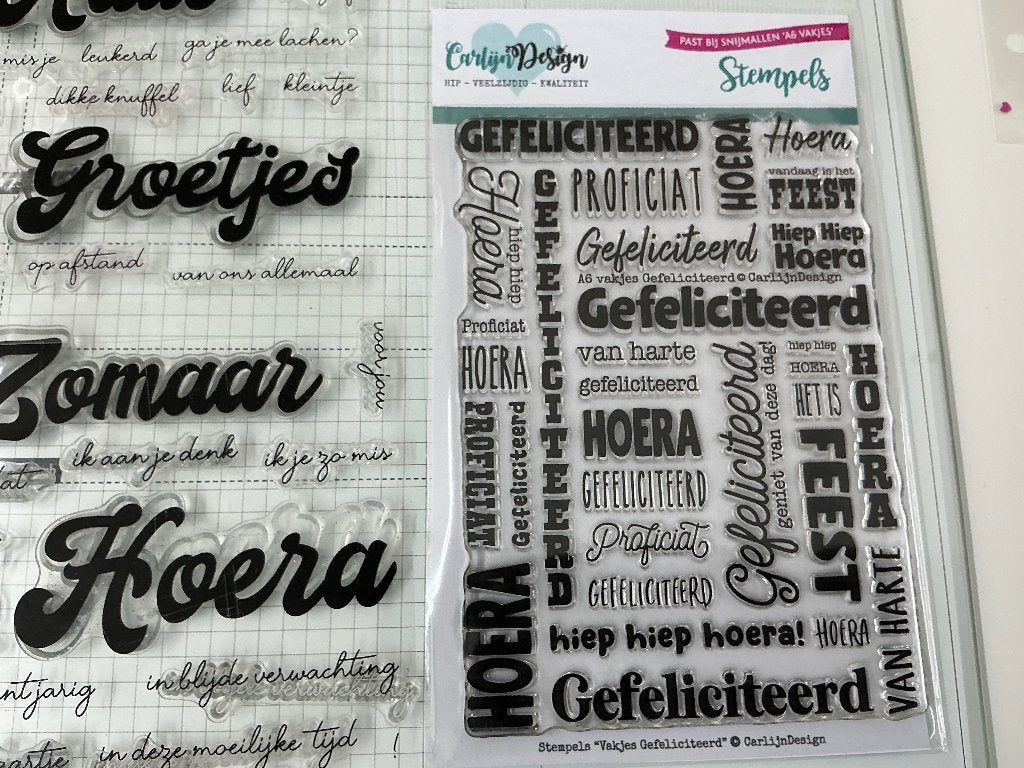 mis je leukerd ga je mee lachen?
dikke knuffel lief kleintje
Groetjes
op afstand van ons allemaal
Zomaar
voor jou
ik aan je denk ik je zo mis
Hoera
in blijde verwachting
in deze moeilijke tijd !
Carlijn Design
HIP - VEELZIJDIG - KWALITEIT
PAST BIJ SNIJMALLEN 'A6 VAKJES'
Stempels
GEFELICITEERD
HOERA
Hoera
Hoera
hiep hiep
GEFELICITEERD
PROFICIAT
vandaag is het
FEEST
Gefeliciteerd
Hiep Hiep
Hoera
A6 vakjes Gefeliciteerd © CarlijnDesign
Gefeliciteerd
Proficiat
HOERA
van harte
gefeliciteerd
Gefeliciteerd
geniet van deze dag!
hiep hiep
HOERA
HET IS
FEEST
HOERA
PROFICIAT
Gefeliciteerd
HOERA
GEFELICITEERD
Proficiat
GEFELICITEERD
HOERA
hiep hiep hoera!
HOERA
VAN HARTE
Gefeliciteerd
Stempels "Vakjes Gefeliciteerd" © CarlijnDesign